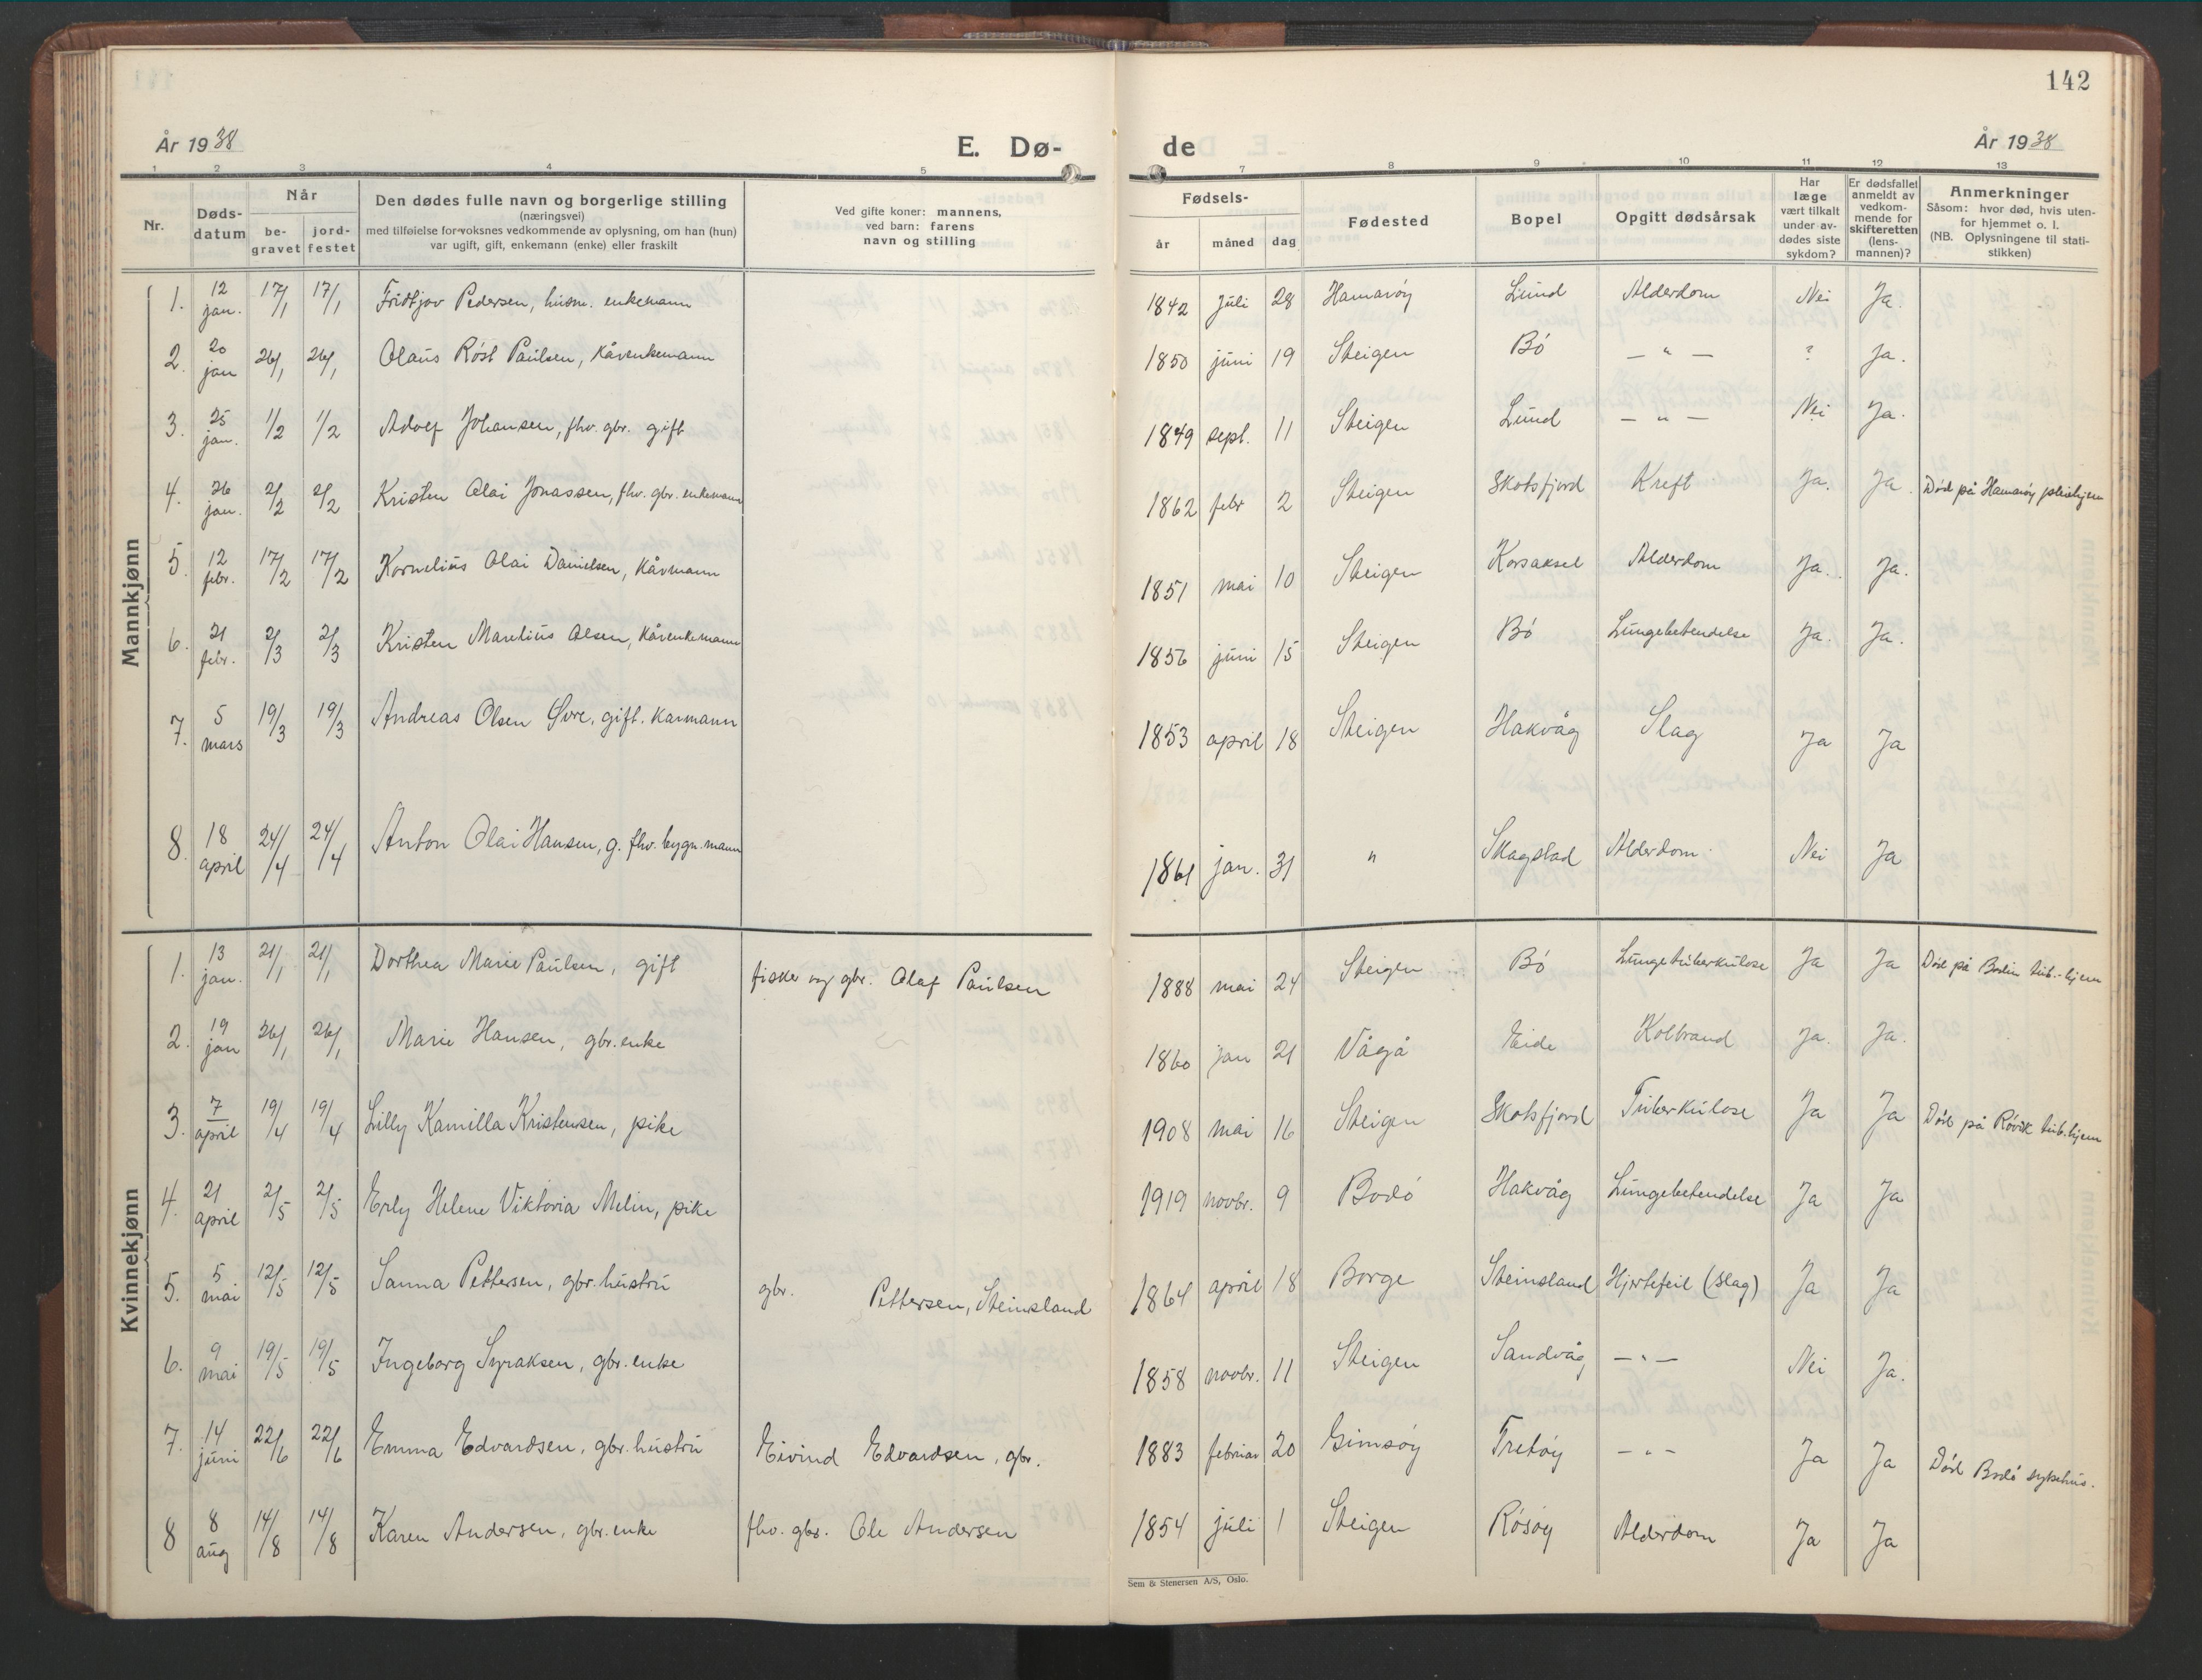 142
År 1938 E. Dø- de År 1938
1 2 3 4 5 7 8 9 10 11 12 13
Nr. Døds-datum Når be-gravet jord-festet
Den dødes fulle navn og borgerlige stilling
(næringsvei)
med tilføielse for voksnes vedkommende av oplysning, om han (hun)
var ugift, gift, enkemann (enke) eller fraskilt
Ved gifte koner: mannens,
ved barn: farens
navn og stilling
Fødsels- år måned dag
Fødested
Bopel
Opgitt dødsårsak
Har læge vært tilkalt under av-dødes siste sykdom?
Er dødsfallet anmeldt av vedkom-mende for skifteretten (lens-mannen)?
Anmerkninger
Såsom: hvor død, hvis uten-
for hjemmet o. l.
(NB. Oplysningene til stati-
stikken)
Mannkjønn
1. 12 jan. 17/1 17/1 Fridtjov Pedersen, husm. enkemann 1842 juli 28 Hamarøy Lund Alderdom Nei Ja.
2. 20 jan 26/1 26/1 Olaus Røst Paulsen, kårenkemann 1850 juni 19 Steigen Bø — " — ? Ja.
3. 25 jan. 1/2 1/2 Adolf Johansen, fhv. gbr. gift 1849 sept. 11 Steigen Lund — " — Nei Ja.
4. 26 jan. 2/2 2/2 Kristen Olai Jonassen, fhv. gbr. enkemann 1862 febr 2 Steigen Skotsfjord Kreft Ja. Ja. Død på Hamarøy pleiehjem
5. 12 febr. 17/2 17/2 Kornelius Olai Danielsen, kårmann 1851 mai 10 Steigen Korsaksel Alderdom Ja. Ja.
6. 21 febr. 2/3 2/3 Kristen Marelius Olsen, kårenkemann 1856 juni 15 Steigen Bø Lungebetendelse Ja. Ja.
7. 5 mars 19/3 19/3 Andreas Olsen Øvre, gift. kårmann 1853 april 18 Steigen Hakvåg Slag Ja Ja
8. 18 april 24/4 24/4 Anton Olai Hansen, g. fhv. bygn.mann 1861 jan. 31 " Skagstad Alderdom. Nei Ja
Kvinnekjønn
1. 13 jan. 21/1 21/1 Dorthea Marie Paulsen, gift fisker og gbr. Olaf Paulsen 1888 mai 24 Steigen Bø Lungetuberkulose Ja Ja Død på Bodin tub.-hjem
2. 19 jan 26/1 26/1 Marie Hansen, gbr.enke 1860 jan 21 Vågå Eide Kolbrand Ja. Ja.
3. 7 april 19/4 19/4 Lilly Kamilla Kristensen, pike 1908 mai 16 Steigen Skotsfjord Tuberkulose Ja Ja Død på Røvik tub.hjem
4. 21 april 2/5 2/5 Erly Helene Viktoria Melin, pike 1919 novbr. 9 Bodø Hakvåg Lungebetendelse Ja Ja
5. 5 mai 12/5 12/5 Sanna Pettersen, gbr.hustru gbr. Pettersen, Steinsland 1864 april 18 Borge Steinsland Hjertefeil (slag) Ja Ja
6. 9 mai 19/5 19/5 Ingeborg Syraksen, gbr.enke 1858 novbr. 11 Steigen Sandvåg — " — Nei Ja.
7. 14 juni 22/6 22/6 Emma Edvardsen, gbr.hustru Eivind Edvardsen, gbr. 1883 februar 20 Gimsøy Tretøy — " — Ja Ja Død Bodø sykehus.
8 8 aug 14/8 14/8 Karen Andersen, gbr.enke fhv. gbr. Ole Andersen 1854 juli 1 Steigen Røsøy Alderdom Ja Ja
Sem & Stenersen A/S, Oslo.